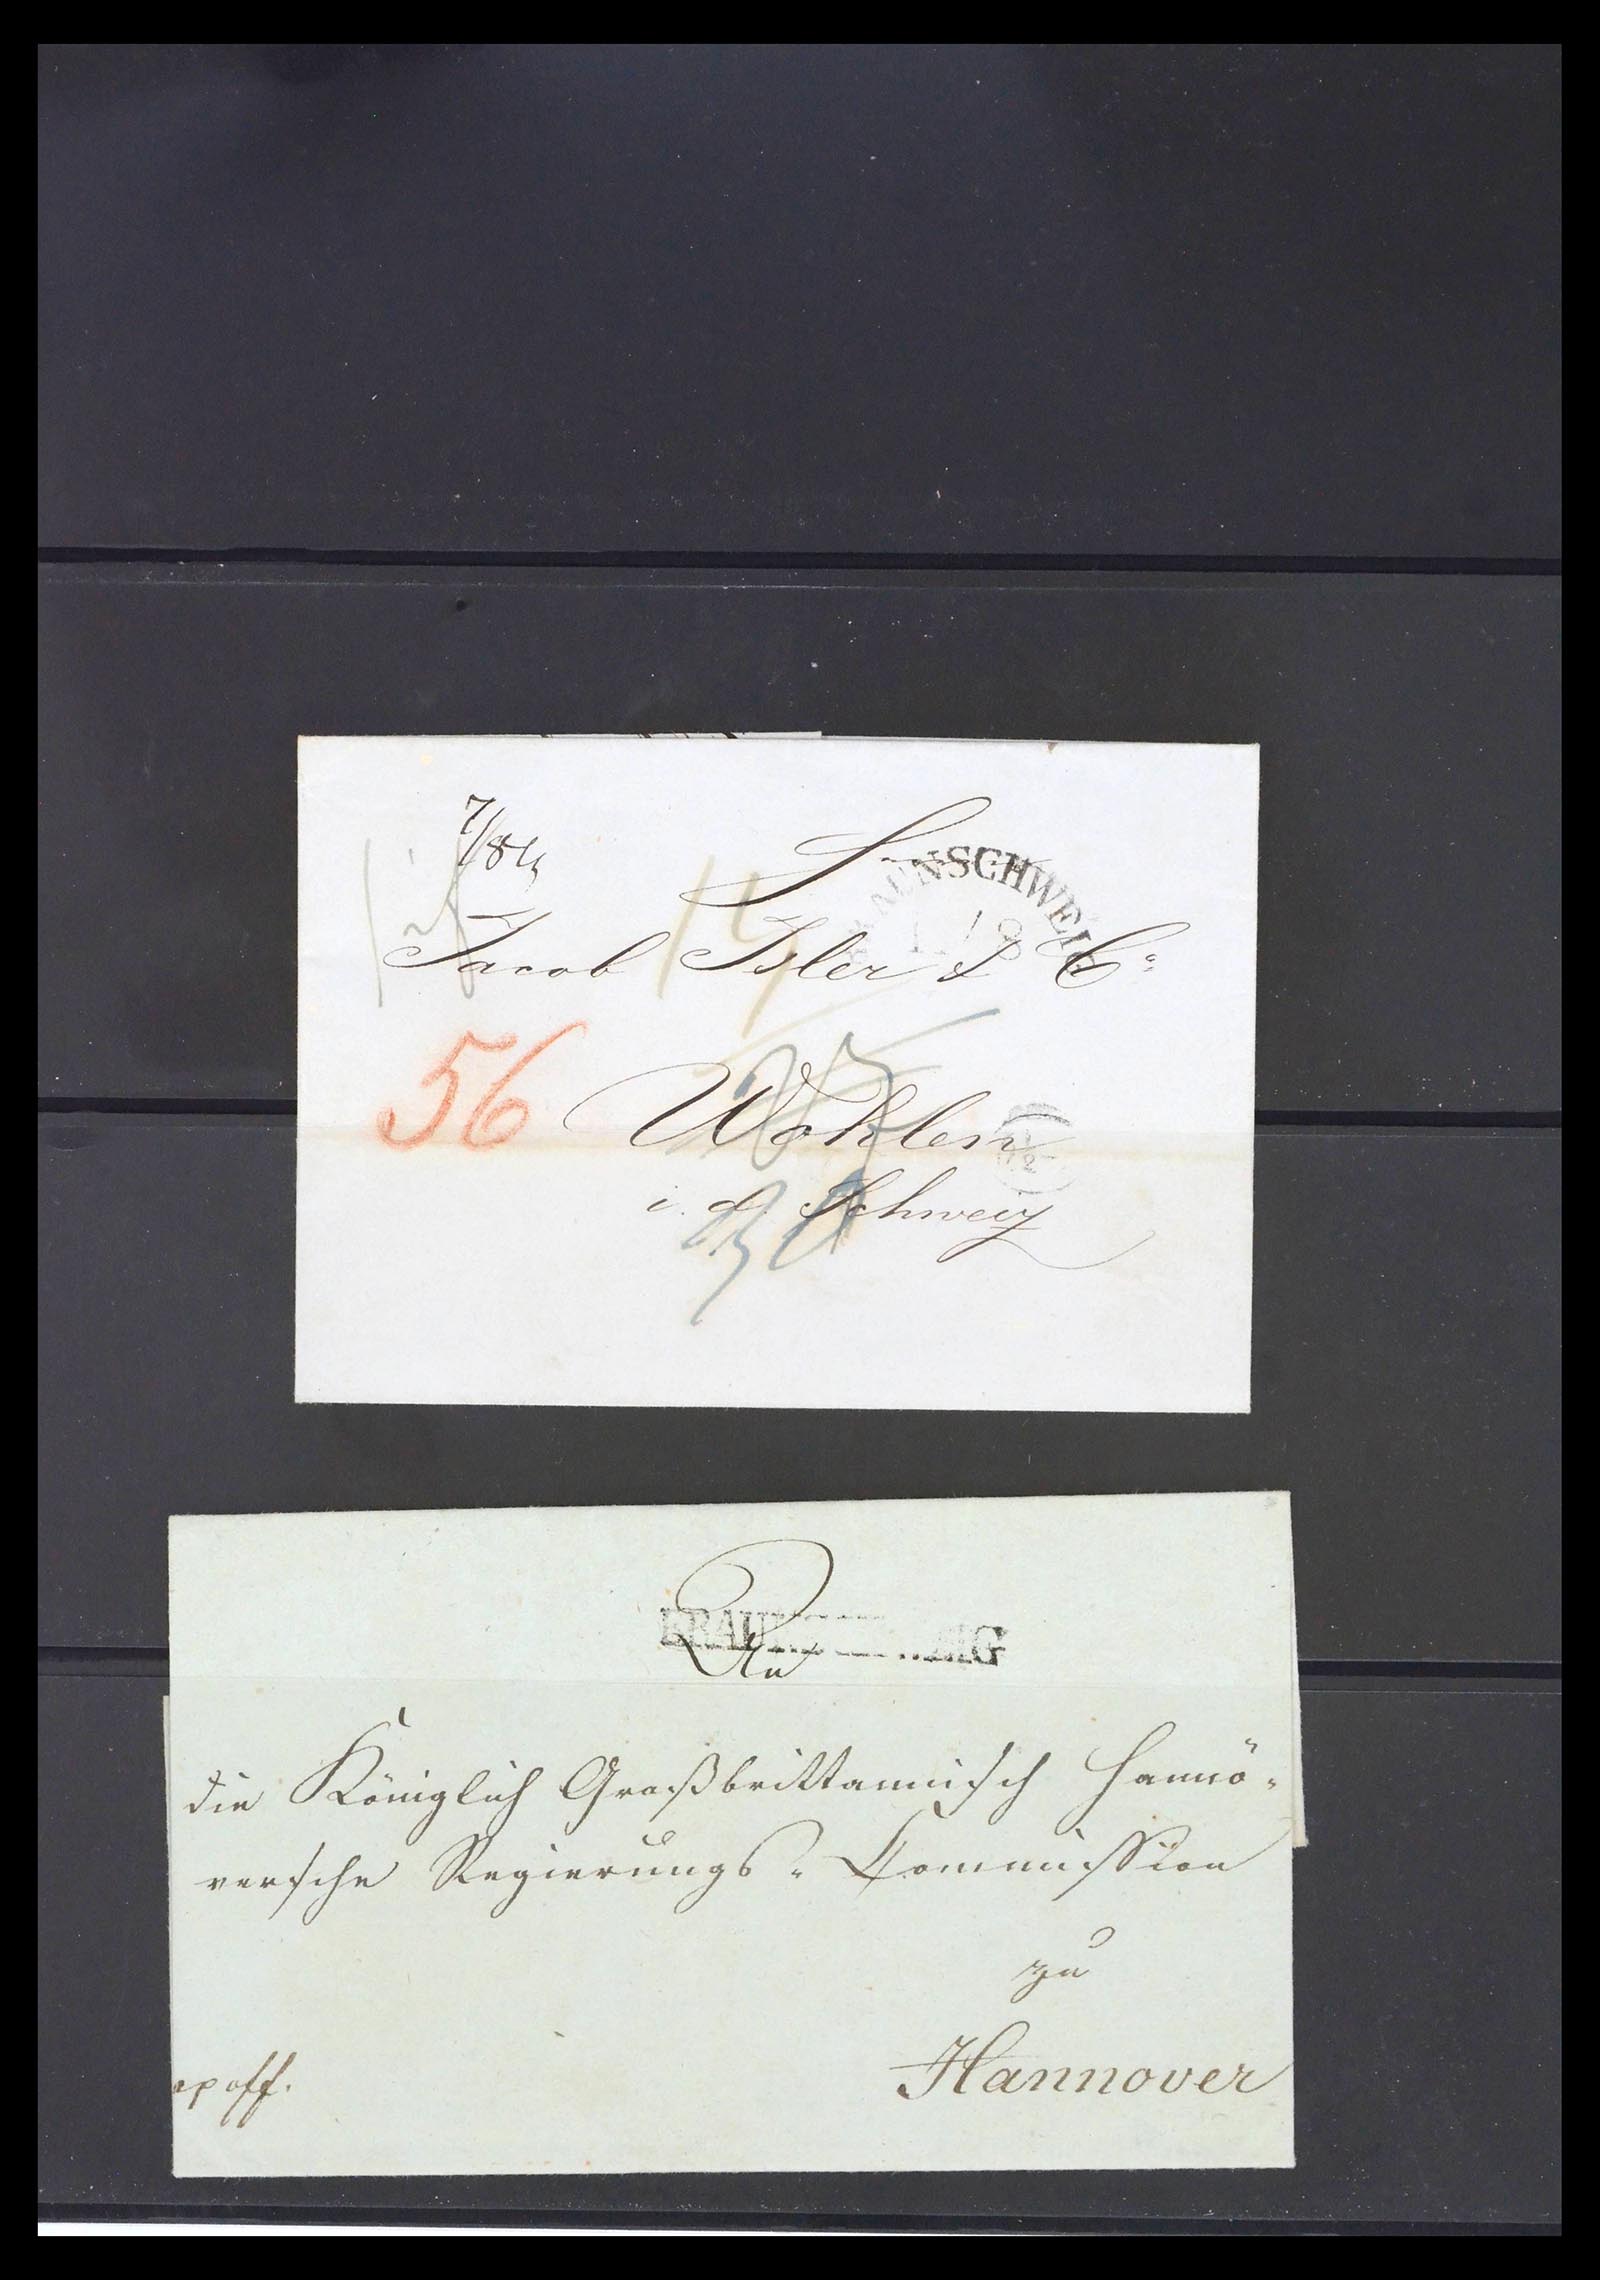 7/8
BRAUNSCHWEIG
Jacob Isler & Co
56
Wohlen
i. d. Schweiz
BRAU EIG
An
die Königlich Großbrittannisch Hannö-
versche Regierungs-Commission
zu
Hannover
off.